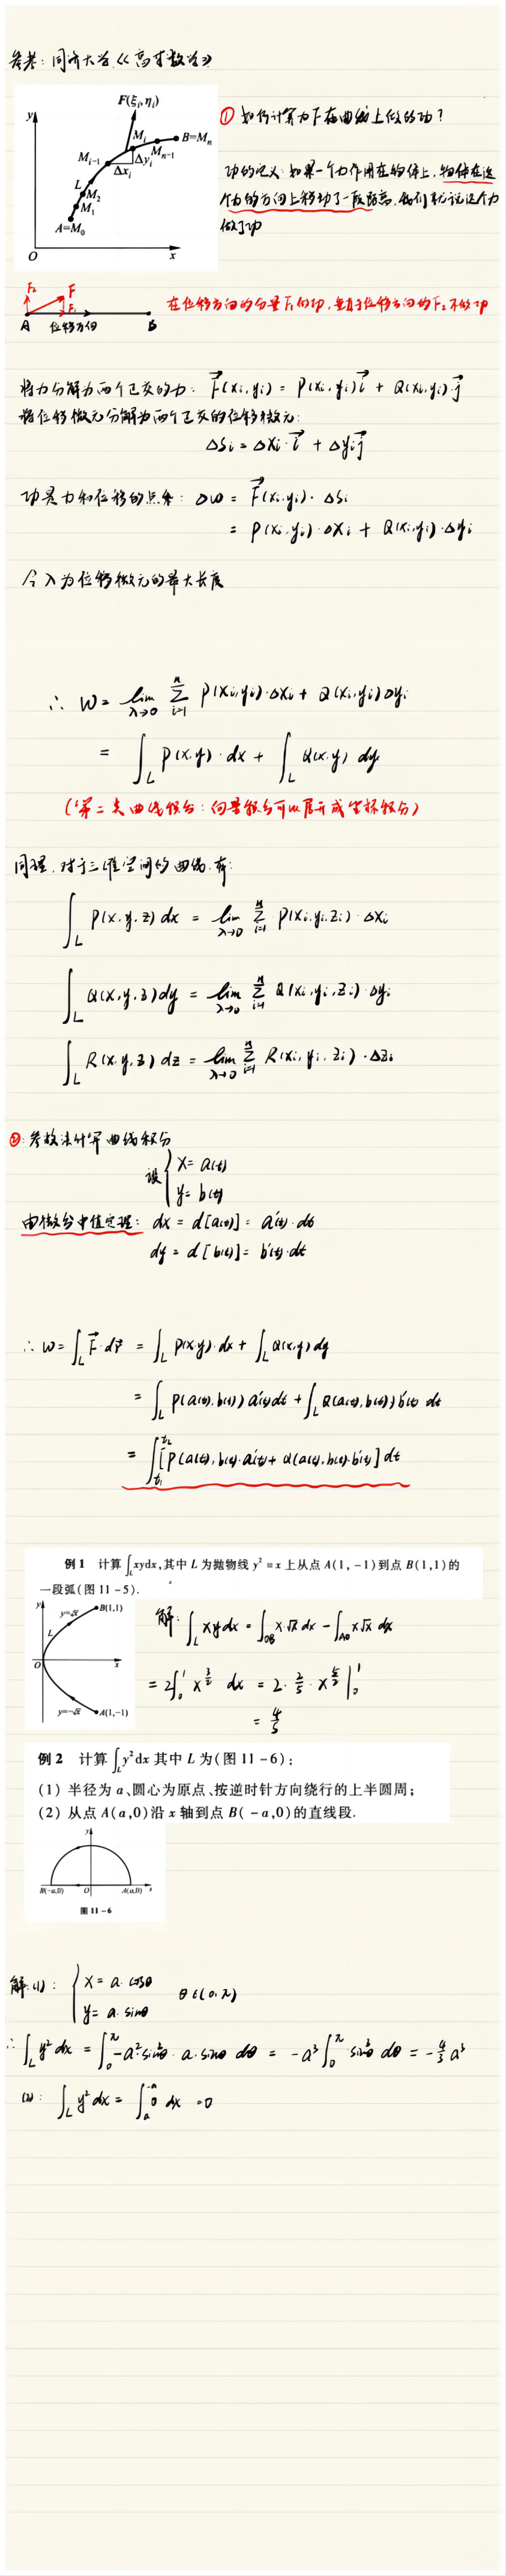 参考：同济大学《高等数学》
F(ξi,ηi)
y
Mi
B=Mn
Mi-1
Δyi
Mn-1
Δxi
L
M2
M1
A=M0
O
x
① 如何计算力F在曲线上做的功？
功的定义：如果一个力作用在物体上，物体在这
个力的方向上移动了一段距离，我们就说这个力
做了功
F2 F
F1
A 位移方向 B
在位移方向的分量F1做功，垂直于位移方向的F2不做功
将力分解为两个正交的力：F(xi,yi) = P(xi,yi)i + Q(xi,yi)j
将位移微元分解为两个正交的位移微元：
ΔSi = Δxi·i + Δyi j
功是力和位移的点乘：Δω = F(xi,yi)·ΔSi
= P(xi,yi)·Δxi + Q(xi,yi)·Δyi
令λ为位移微元的最大长度
∴ W = lim λ→0 Σ i=1 n P(xi,yi)·Δxi + Q(xi,yi)Δyi
= ∫L P(x,y)·dx + ∫L Q(x,y) dy
（第二类曲线积分：向量积分可以展开成坐标积分）
同理，对于三维空间的曲线，有：
∫L P(x,y,z) dx = lim λ→0 Σ i=1 n P(xi,yi,zi)·Δxi
∫L Q(x,y,z) dy = lim λ→0 Σ i=1 n Q(xi,yi,zi)·Δyi
∫L R(x,y,z) dz = lim λ→0 Σ i=1 n R(xi,yi,zi)·Δzi
②：参数法计算曲线积分
设 { x = a(t)
y = b(t)
由微分中值定理：dx = d[a(t)] = a'(t)·dt
dy = d[b(t)] = b'(t)·dt
∴ W = ∫L F·dr = ∫L P(x,y)·dx + ∫L Q(x,y) dy
= ∫L P(a(t),b(t)) a'(t)dt + ∫L Q(a(t),b(t)) b'(t) dt
= ∫t1 t2 [P(a(t),b(t)·a'(t) + Q(a(t),b(t)·b'(t)] dt
例 1 计算∫L xydx,其中 L 为抛物线 y² = x 上从点 A(1,-1)到点 B(1,1)的
一段弧(图 11-5).
y
y=√x
B(1,1)
L
O
x
y=-√x
A(1,-1)
解：∫L xy dx = ∫OB x·√x dx - ∫AO x√x dx
= 2∫0 1 x^(3/2) dx = 2·2/5·x^(5/2) |0 1
= 4/5
例 2 计算∫L y²dx 其中 L 为(图 11-6):
(1) 半径为 a、圆心为原点、按逆时针方向绕行的上半圆周;
(2) 从点 A(a,0)沿 x 轴到点 B(-a,0)的直线段.
y
B(-a,0) O A(a,0) x
图 11-6
解：(1)： { x = a·cosθ
y = a·sinθ θ∈(0,π)
∴ ∫L y² dx = ∫0 π -a²sin²θ·a·sinθ dθ = -a³∫0 π sin³θ dθ = -4/3 a³
(2)：∫L y² dx = ∫a -a 0 dx = 0